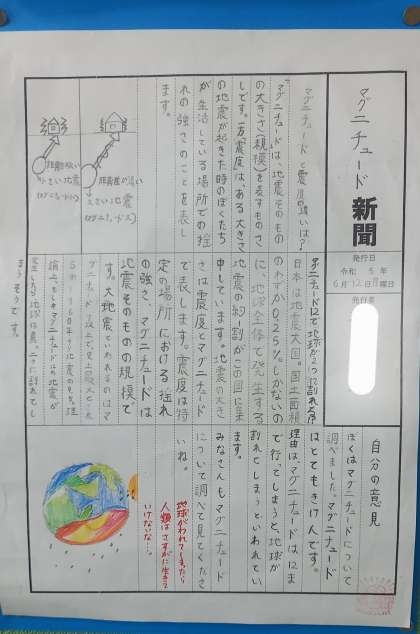 マグニチュード新聞
発行日
令和5年
6月12日月曜日
発行者
マグニチュードと震度の違いは?
マグニチュードは、地震そのもの
の大きさ(規模)を表すものさ
しです。一方震度は、ある大きさ
の地震が起きた時のぼくたち
が生活している場所での揺
れの強さのことを表し
ます。
距離が近い
小さい地震
距離が遠い
大きい地震
マグニチュード12で地球が2つに割れる?
日本は地震大国。国土面積
のわずか0.25%しかないの
に、地球全体で発生する
地震の約1割がこの国に集
中しています。地震の大き
さは震度とマグニチュード
で表します。震度は特
定の場所における揺れ
の強さ、マグニチュードは
地震そのものの規模で
す。大地震といわれるのはマ
グニチュード
まうそうです。
自分の意見
ぼくはマグニチュードについて
調べました。マグニチュード
はとてもきけんです。
理由はマグニチュードは12ま
で行ってしまうと、地球が
割れてしまうといわれてい
ます。
みなさんもマグニチュード
について調べて見てくださ
いね。
地球がわれてしまったら
人類はさすがに生きて
いけないな…。